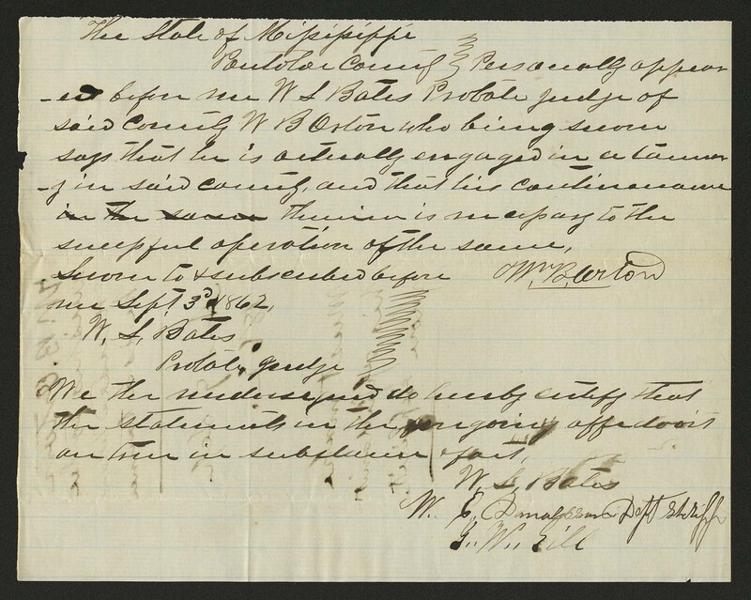 The State of Mississippi
Pontotoc County } Personally appear
-ed before me W S Bates Probate Judge of
said County W B Orton who being sworn
says that he is actually engaged in a tanner
-y in said county, and that his continuance
in the same therein is necessary to the
successful operation of the same,
Sworn to & subscribed before Wm. B. Orton
me Sept 3d 1862,
W. S. Bates
Probate Judge
We the undersigned do hereby certify that
the statements in the foregoing affidavit
are true in substance & fact,
W. S. Bates
W. Dept Sheriff
G. W. Gill